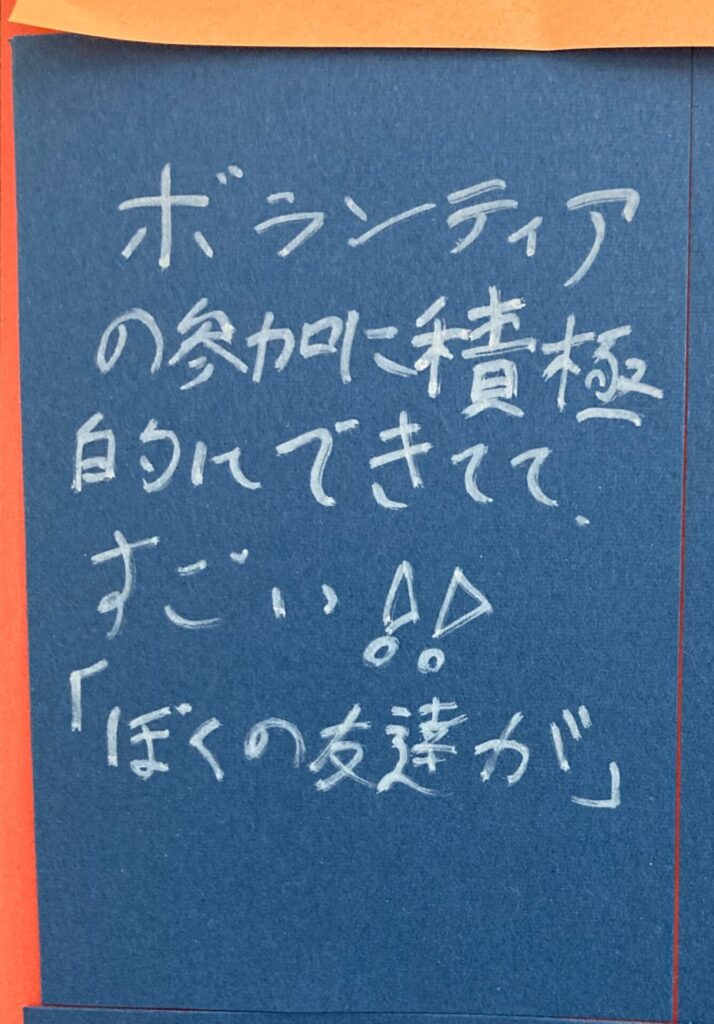 ボランティア
の参加に積極
的にできてて、
すごい!!
「ぼくの友達が」